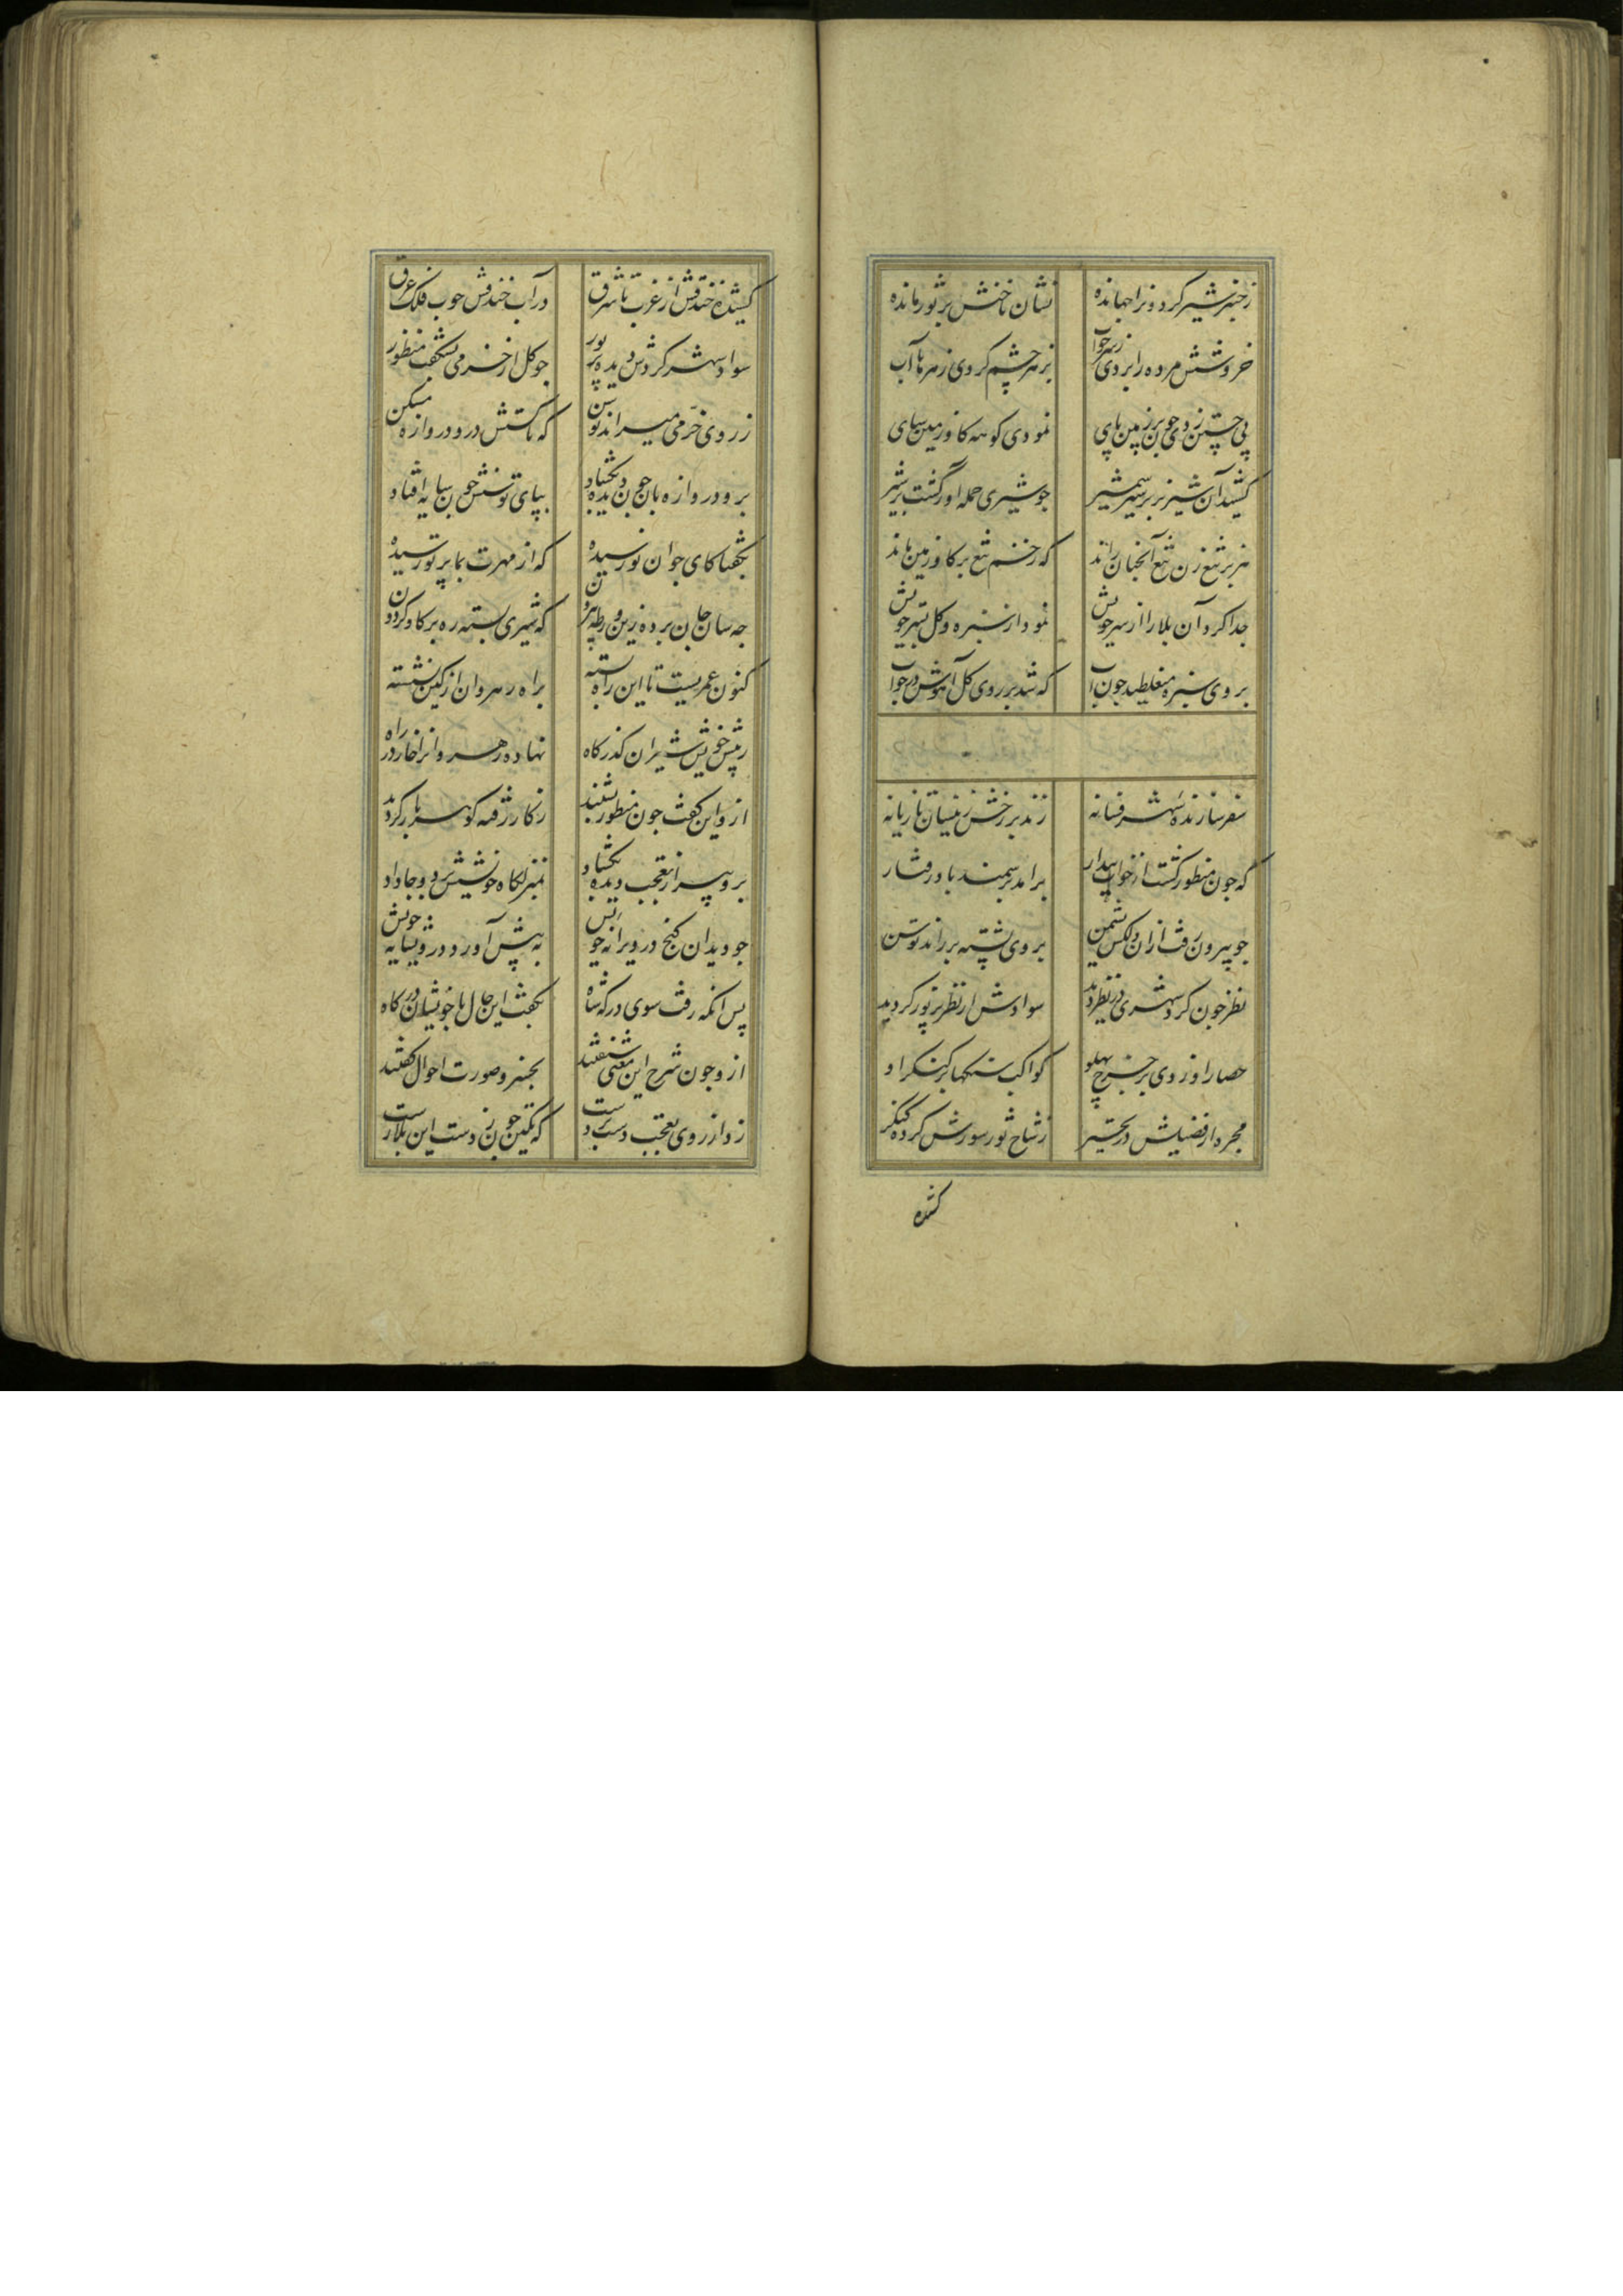 ز جنبر شیر کردونرا جهانده نشان ناخنش بر ثور مانده
خروشش مرده را بردی ز سر خواب ز زهر چشم کردی زهرها آب
پی جستن زدی چون بر زمین پای نمودی کوهه کاو زمین جای
کشید آن شیر نر بر شیر شمشیر چو شیری حمله آور کشت بر شیر
هزبر تیغ زن تیغ آنچنان راند که زخم تیغ بر کاو زمین ماند
جدا کرد آن بلا را از سر خویش نمود از سبزه و کل بستر خویش
بروی سبزه میغلطید چون آب که شد بر روی کل آهوش در خواب
سفر سازنده شهر فسانه زند بر رخش زینسان تازیانه
که چون منظور کشت از خواب بیدار برآمد بر سمند باد رفتار
چو بیرون رفت از آن دلکش نشیمن بروی پشته بر راند توسن
نظر چون کرد شهری در نظر دید سوادش از نظر پر نور کردید
حصار او زدی بر چرخ پهلو کواکب سنکها بر کنکر او
مجره از فضیلش در تحیر ز شاخ ثور سورش کرده کنکر
کشیده
کشیده خندقش از غرب تا شرق در آب خندقش چوب فلک غرق
سواد شهر کردش دیده پر نور چو کل از خرمی بشکفت منظور
ز روی خرمی میراند توسن که تا کشتش در دروازه مسکن
برو دروازه بان چون دیده بکشاد بپای توسنش چون سایه افتاد
بکفتا کای جوان نو رسیده که از مهرت بما پرتو رسیده
چه سان جان برده زین ورطه بیرون که شیری بسته ره بر کاو کردون
کنون عمریست تا این راه بسته براه رهروان از کین نشسته
ز نیش خویش شیر این کذرکاه نهاده رهروانرا خار در راه
ازو این کفت چون منظور بشنید ز کار رفته کوهر بار کردید
برو پیر از تعجب دیده بکشاد بمنزلکاه خویشش برد و جا داد
چو دید آن کنج در ویرانه خویش به پیش آورد درویشانه خویش
پس آنکه رفت سوی درکه شاه بکفت این حال با خویشان درکاه
ازو چون شرح این معنی شنفتند بخسرو صورت احوال کفتند
زد از روی تعجب دست بر دست که مکین چون ز دست این بلا رست